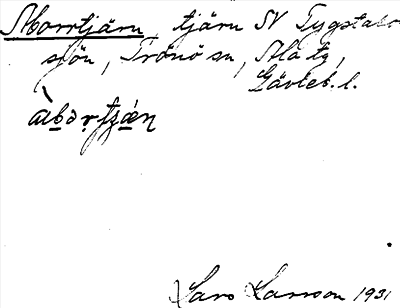 Aborrtjärn, tjärn SV Tygstabo
sjön, Trönö sn, Ala tg,
Gävleb. l.
Lars Larsson 1931